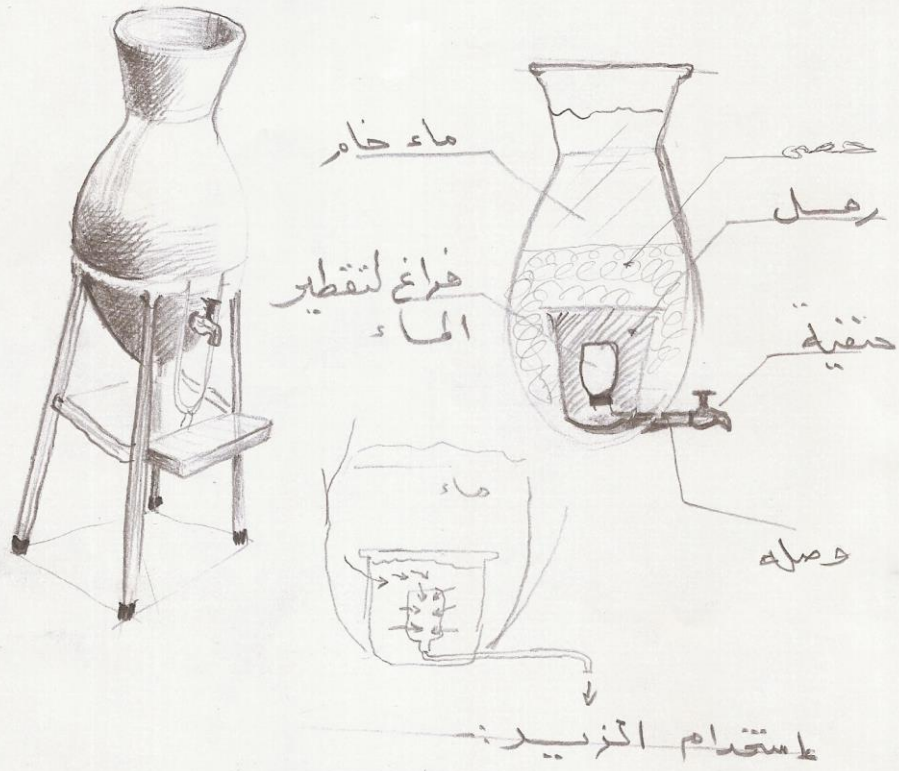 ماء خام
حصى
رمل
فراغ لتقطير
الماء
حنفية
ماء
وصله
إستخدام الزير: